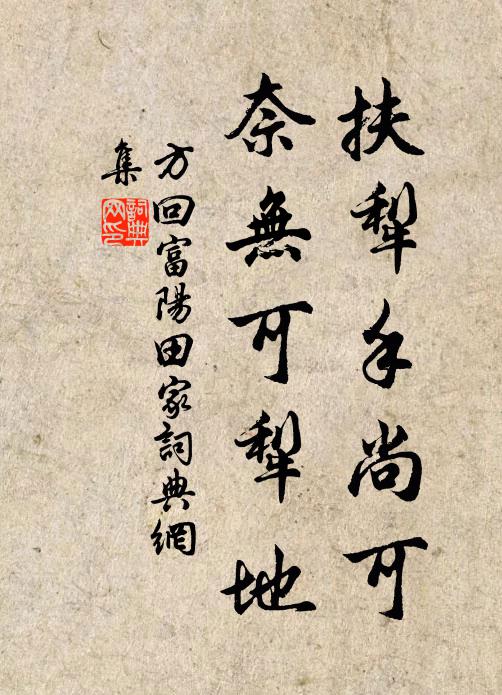 扶犁手尚可
奈無可犁地
方回富陽田家詞典網
集
詞典
网印